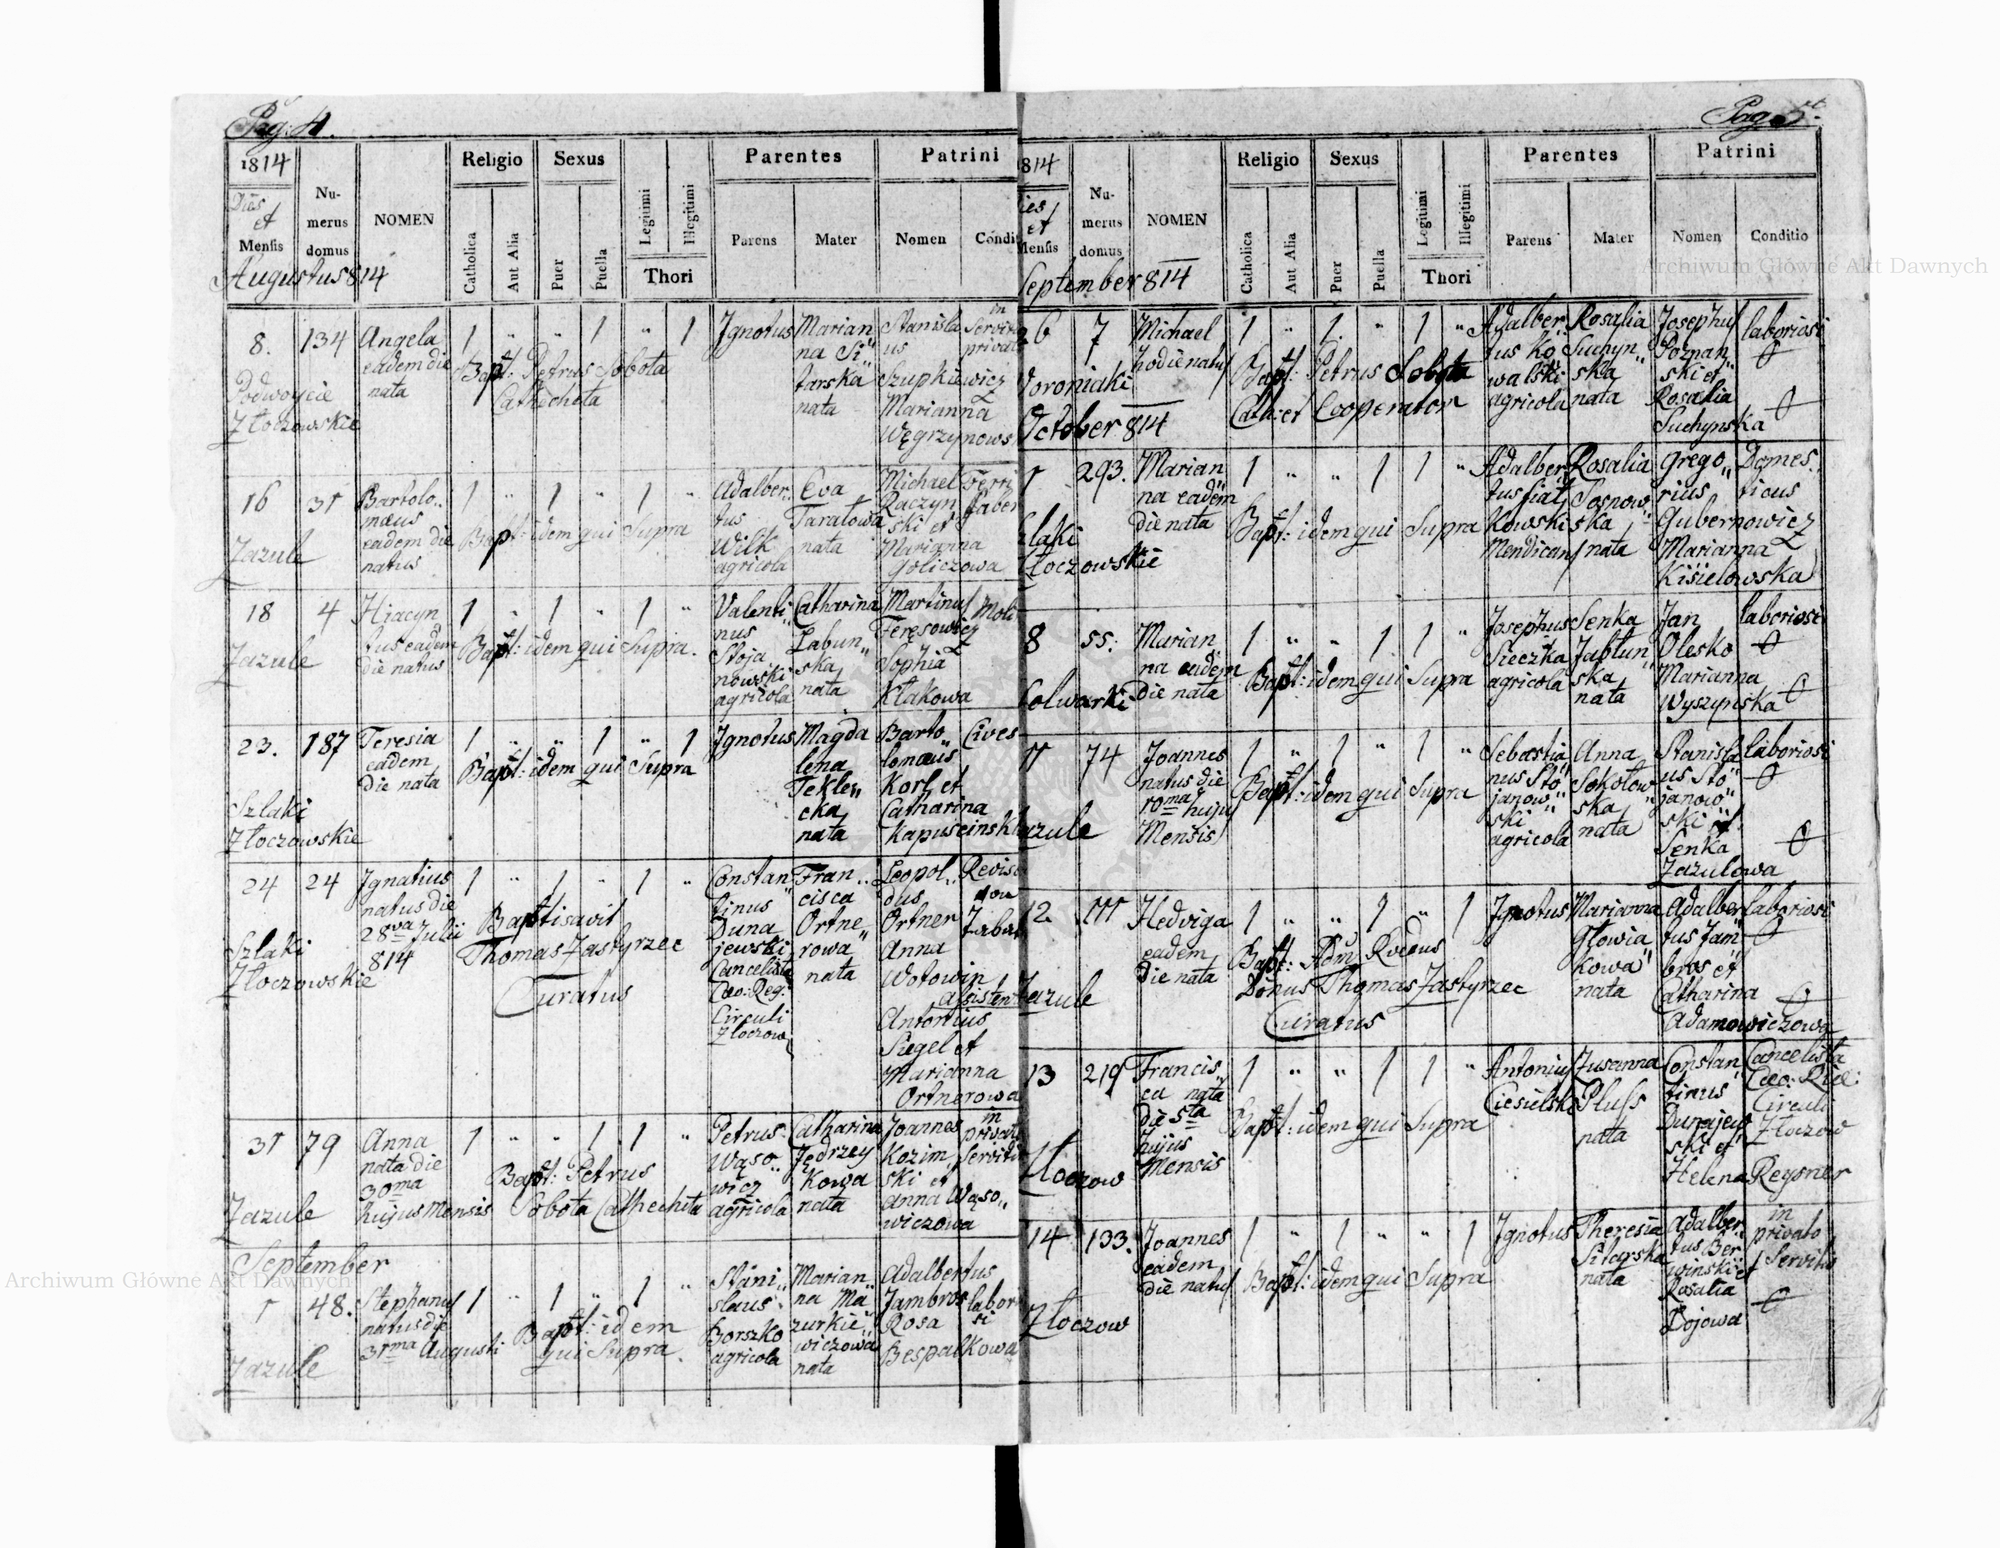 Pag: 4.
1814
Dies et Mensis
Numerus domus
NOMEN
Religio
Catholica
Aut Alia
Sexus
Puer
Puella
Legitimi
Illegitimi
Thori
Parentes
Parens
Mater
Patrini
Nomen
Conditi
Augustus 814
8.
Podwoycie
Złoczowskie
134
Angela
eadem die
nata
1 " " 1 " 1
Bapt: Petrus Sobota
Cathecheta
Ignotus
Marian
na Si"
tarska
nata
Stanisla
us
Szupkiewicz
Marianna
Węgrzynows
in
servit
privat
16
Zazule
31
Bartolo"
mæus
eadem die
natus
1 " 1 " 1 "
Bapt: idem qui Supra
Adalber"
tus
Wilk
agricola
Eva
Taratowa
nata
Michael
Raczyn
ski et
Marianna
Goliczowa
Ferri
faber
18
Zazule
4
Hiacyn
tus eadem
die natus
1 " 1 " 1 "
Bapt: idem qui Supra.
Valenti"
nus
Stoja
nowski
agricola
Catharina
Labun"
ska
nata
Martinus
Teresowicz
Sophia
Klakowa
Moli
23.
Szlaki
Złoczowskie
187
Teresia
eadem
die nata
1 " " 1 " 1
Bapt: idem qui Supra
Ignotus
Magda
lena
Tekle"
cka
nata
Barto"
lomæus
Korl et
Catharina
Kapuscinsk
Cives
24
Szlaki
Złoczowskie
24
Ignatius
natus die
28va Julii
814
1 " 1 " 1 "
Baptisavit
Thomas Zastyrzec
Curatus
Constan"
tinus
Duna
jewski
Cancelista
Cæo: Reg:
Circuli
Złoczow
Fran"
cisca
Ortne"
rowa
nata
Leopol"
dus
Ortner
Anna
Wotowin
Assistent
Antonius
Siegel et
Marianna
Ortnerowa
Reviso
31
Zazule
79
Anna
nata die
30ma
hujus Mensis
1 " " 1 1 "
Bapt: Petrus
Sobota Cathecheta
Petrus
Wąso"
wicz
agricola
Catharina
Jędrzey
kowa
nata
Joannes
Kozim"
ski et
Anna Wąso"
wiczowa
in
privat
Servit
September
1
Zazule
48.
Stephanus
natus die
31ma Augusti
1 " 1 " 1 "
Bapt: idem
qui Supra.
Stani"
slaus
Borszko
agricola
Marian"
na Ma"
zurkie"
wiczowa
nata
Adalbertus
Jambros
Rosa
Bespalkowa
labor
si
Pag 5t.
814
ies et
Mensis
Numerus domus
NOMEN
Religio
Catholica
Aut Alia
Sexus
Puer
Puella
Legitimi
Illegitimi
Thori
Parentes
Parens
Mater
Patrini
Nomen
Conditio
September 814
6
Woroniaki
7
Michael
hodie natus
1 " 1 " 1 "
Bapt: Petrus Sobota
Cath: et Cooperator
Adalber"
tus Ko
walski
agricola
Rosalia
Suchyn"
ska
nata
Josephus
Poznan"
ski et
Rosalia
Suchynska
laboriosi
October 814
1
zlaki
Złoczowskie
293.
Marian
na eadem
die nata
1 " " 1 1 "
Bapt: idem qui Supra
Adalber
tus Fiat
kowski
Mendicans
Rosalia
Sosnow"
ska
nata
Grego"
rius
Gubernowicz
Marianna
Kisielowska
Domes"
ticus
8
Folwarki
55.
Marian
na eadem
die nata
1 " " 1 1 "
Bapt: idem qui Supra
Josephus
Sieczka
agricola
Senka
Jabłun"
ska
nata
Jan
Olesko
Marianna
Wyszynska
laboriosi
11
Zazule
74
Joannes
natus die
10ma hujus
Mensis
1 " 1 " 1 "
Bapt: idem qui Supra
Sebastia
nus Sto"
janow"
ski
agricola
Anna
Sokołow"
ska
nata
Stanisla
us Sto"
janow"
ski et
Senka
Zazulowa
laboriosi
12.
Zazule
111
Hedviga
eadem
die nata
1 " " 1 " 1
Bapt: Adm Rvdus
Dönus Thomas Zastyrzec
Curatus
Ignotus
Marianna
Głowia
kowa
nata
Adalber
tus Jam"
bros et
Catharina
Adamowiczowa
laboriosi
13
Złoczow
219
Francis
ca nata
die 5ta
hujus
Mensis
1 " " 1 1 "
Bapt: idem qui Supra
Antonius
Ciesielski
Zusanna
Pluss
nata
Constan"
tinus
Dunajew
ski et
Helena Reysner
Cancelista
Cæo: Rie:
Circuli
Złoczow
14
Złoczow
133.
Joannes
eadem
die natus
1 " 1 " " 1
Bapt: idem qui Supra
Ignotus
Theresia
Sitarska
nata
Adalber"
tus Ber
winski et
Rosalia
Dojowa
in
privato
Servitio
Archiwum Główne Akt Dawnych
Archiwum Główne Akt Dawnych